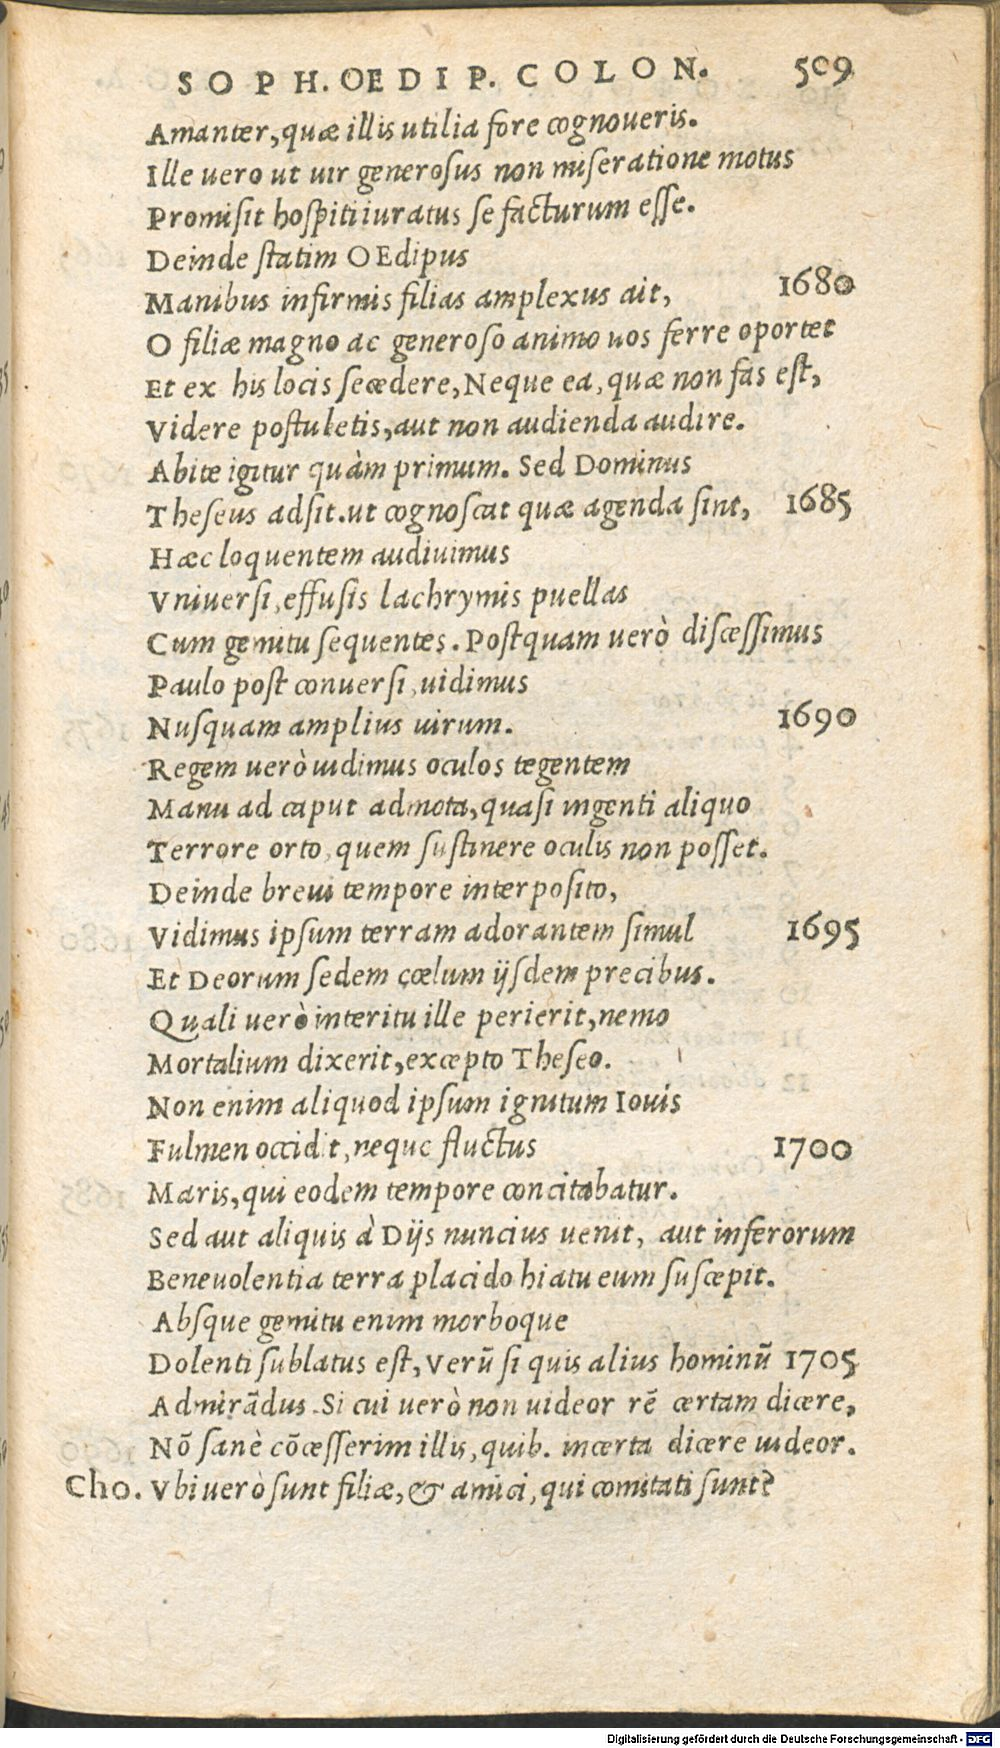 SOPH. OEDIP. COLON. 509
Amanter, quæ illis utilia fore cognoueris.
Ille uero ut uir generosus non miseratione motus
Promisit hospiti iuratus se facturum esse.
Deinde statim OEdipus
Manibus infirmis filias amplexus ait, 1680
O filiæ magno ac generoso animo uos ferre oportet
Et ex his locis secedere, Neque ea, quæ non fas est,
Videre postuletis, aut non audienda audire.
Abite igitur quàm primum. Sed Dominus
Theseus adsit. ut cognoscat quæ agenda sint, 1685
Hæc loquentem audiuimus
Vniuersi, effusis lachrymis puellas
Cum gemitu sequentes. Postquam uerò discessimus
Paulo post conuersi, uidimus
Nusquam amplius uirum. 1690
Regem uerò uidimus oculos tegentem
Manu ad caput admota, quasi ingenti aliquo
Terrore orto, quem sustinere oculis non posset.
Deinde breui tempore interposito,
Vidimus ipsum terram adorantem simul 1695
Et Deorum sedem cœlum ijsdem precibus.
Quali uerò interitu ille perierit, nemo
Mortalium dixerit, excepto Theseo.
Non enim aliquod ipsum ignitum Iouis
Fulmen occidit, neque fluctus 1700
Maris, qui eodem tempore concitabatur.
Sed aut aliquis à Dijs nuncius uenit, aut inferorum
Beneuolentia terra placido hiatu eum suscepit.
Absque gemitu enim morboque
Dolenti sublatus est, Verũ si quis alius hominũ 1705
Admirãdus. Si cui uerò non uideor rẽ certam dicere,
Nõ sanè cõcesserim illis, quib. incerta dicere uideor.
Cho. Vbi uerò sunt filiæ, & amici, qui comitati sunt?
Digitalisierung gefördert durch die Deutsche Forschungsgemeinschaft - DFG